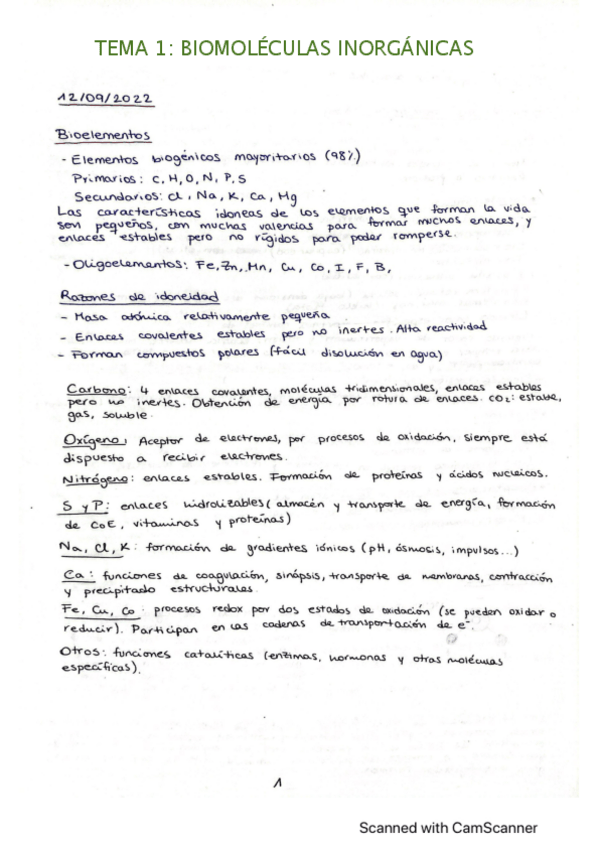 TEMA 1: BIOMOLÉCULAS INORGÁNICAS
12/09/2022
Bioelementos
- Elementos biogénicos mayoritarios (98%)
Primarios: C, H, O, N, P, S
Secundarios: Cl, Na, K, Ca, Mg
Las características idoneas de los elementos que forman la vida
son pequeños, con muchas valencias para formar muchos enlaces, y
enlaces estables pero no rígidos para poder romperse.
- Oligoelementos: Fe, Zn, Mn, Cu, Co, I, F, B,
Razones de idoneidad
- Masa atómica relativamente pequeña
- Enlaces covalentes estables pero no inertes. Alta reactividad
- Forman compuestos polares (fácil disolución en agua)
Carbono: 4 enlaces covalentes, moléculas tridimensionales, enlaces estables
pero no inertes. Obtención de energía por rotura de enlaces. CO₂: estable,
gas, soluble.
Oxígeno, Aceptor de electrones, por procesos de oxidación, siempre está
dispuesto a recibir electrones.
Nitrógeno: enlaces estables. Formación de proteínas y ácidos nucleicos.
S y P: enlaces hidrolizables (almacén y transporte de energía, formación
de CoE, vitaminas y proteínas)
Na, Cl, K: formación de gradientes iónicos (pH, ósmosis, impulsos...)
Ca: funciones de coagulación, sinápsis, transporte de membranas, contracción
y precipitado estructurales.
Fe, Cu, Co: procesos redox por dos estados de oxidación (se pueden oxidar o
reducir). Participan en las cadenas de transportación de e⁻.
Otros: funciones catalíticas (enzimas, hormonas y otras moléculas
específicas).
1
Scanned with CamScanner